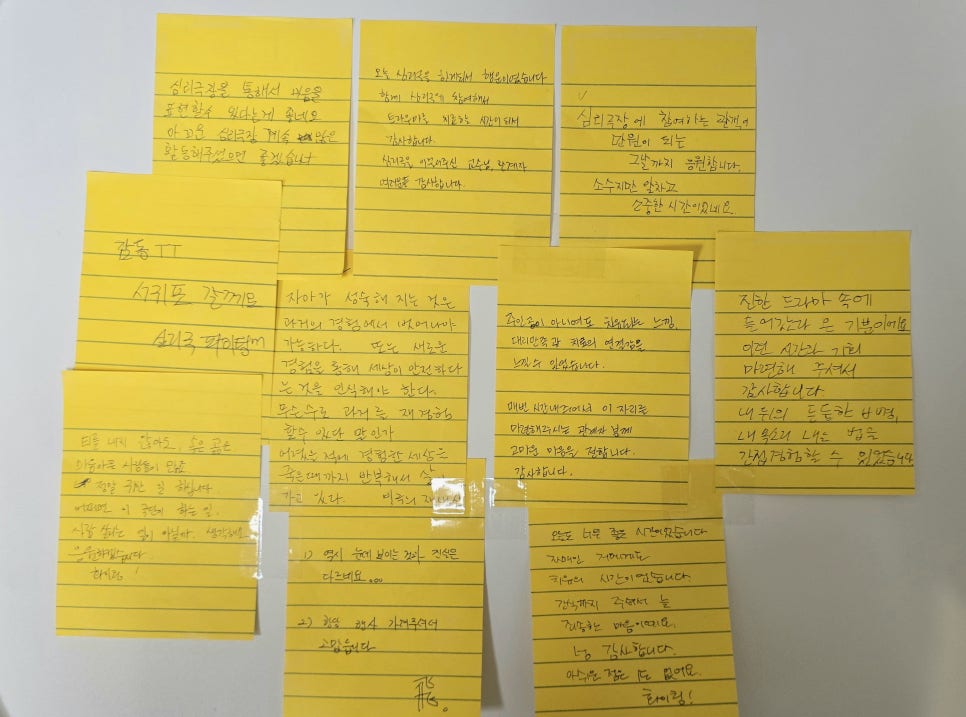 심리극장을 통해서 마음을
표현할수 있다는게 좋네요
심리극장 계속
활동해주셨으면 좋겠습니다
오늘 심리극을 하게되서 행운이었습니다
함께 심리극에 참여해서
트라우마를 치료하는 시간이 되서
감사합니다.
심리극을 이끌어주신 교수님, 관계자
여러분들 감사합니다.
심리극장에 참여하는 관객이
만원이 되는
그날까지 응원합니다.
소수지만 알차고
소중한 시간이었네요.
감동 ㅜㅜ
서귀포 갈꺼기요
심리극 파이팅
자아가 성숙해 지는 것은
과거의 경험에서 벗어나야
가능하다. 또는 새로운
경험을 통해 세상이 안전하다
는 것을 인식해야 한다.
무슨수로 과거를 재경험
할수 있단 말인가
어렸는 적에 경험한 세상은
죽을때까지 반복해서 살
가고 있다.
주인공이 아니여도 치유되는 느낌,
대리만족과 치료의 연결감을
느낄수 있었습니다.
매번 시간내주어서 이 자리를
마련해주시는 관계자 분께
고마운 마음을 전합니다.
감사합니다.
진한 드라마 속에
들어갔다 온 기분이에요
이런 시간과 기회
마련해 주셔서
감사합니다.
내 뒤의 든든한
내 목소리 내는 법을
간접경험할 수 있었습니다
티를 내지 않아도, 속은 곪은
마음아픈 사람들이 많고
정말 귀한 일 하십니다
어쩌면 이 극단이 하는 일.
사람 살리는 일이 아닐까. 생각해요
응원하겠습니다.
화이팅!
1) 역시 눈에 보이는 것과 진실은
다르네요...
2) 항상 행사 가져주셔서
고맙습니다
오늘도 너무 좋은 시간이었습니다
저에게도
치유의 시간이었습니다.
간식까지 주셔서 늘
죄송한 마음이에요.
넘 감사합니다.
아쉬운 점은 1도 없어요.
화이팅!